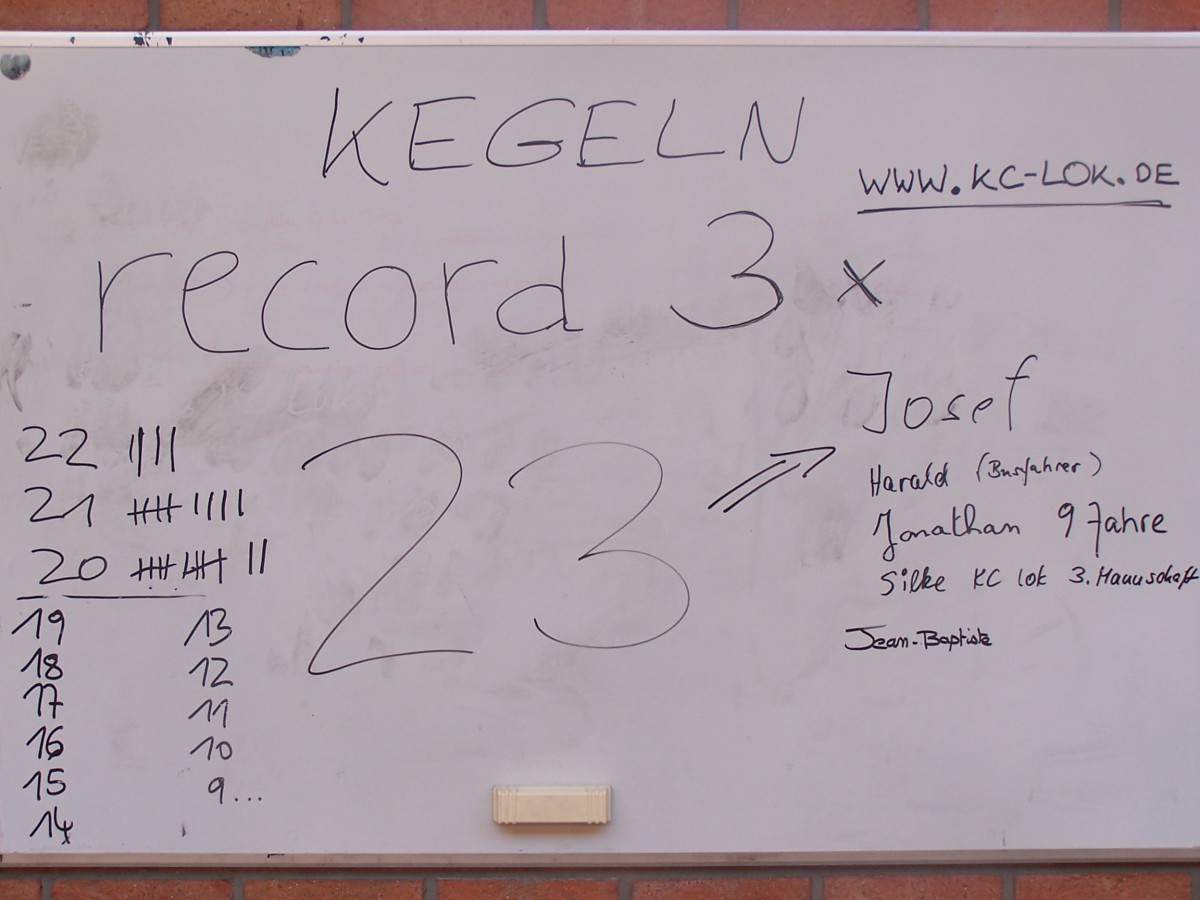 KEGELN
WWW.KC-LOK.DE
record 3 x
23
Josef
Harald (Busfahrer)
Jonathan 9 Jahre
Silke KC lok 3. Mannschaft
Jean-Baptiste
22 ||||
21 |||| ||||
20 |||| |||| ||
19
18
17
16
15
14
13
12
11
10
9...